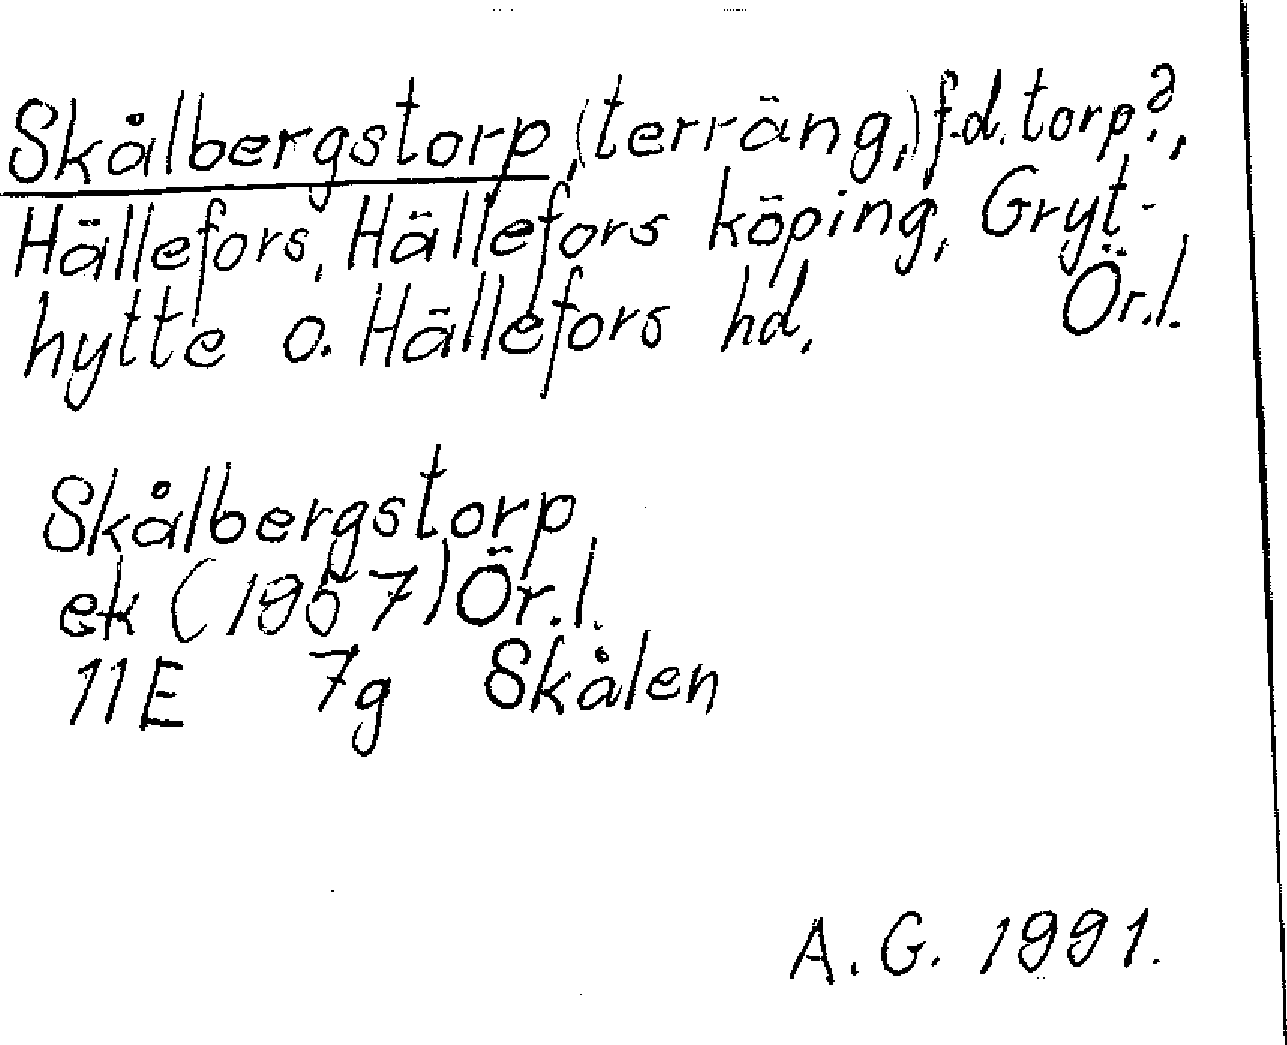 Skålbergstorp, (terräng,) f.d. torp?,
Hällefors, Hällefors köping, Gryt-
hytte o. Hällefors hd. Ör.l.
Skålbergstorp
ek (1957) Ör.l.
11E 7g Skålen
A.G. 1991.